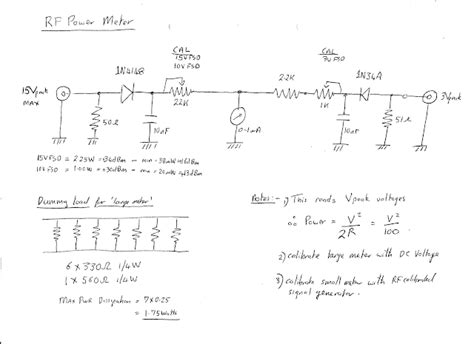 RF Power Meter
CAL
15V FSD
10V FSD
CAL
3V FSD
1N4148
2.2K
1N34A
15Vpeak
MAX
22K
1K
3Vpeak
50Ω
10nF
0-1mA
10nF
51Ω
15V FSD = 2.25W = +36dBm - min -
10V FSD = 1.00W = +30dBm - min -
Dummy load for 'large meter'
6 x 330Ω 1/4W
1 x 560Ω 1/4W
Max Pwr Dissipation = 7 x 0.25
= 1.75Watts
Notes:- 1) This reads Vpeak voltages
∴ Power = V²/2R = V²/100
2) calibrate large meter with DC Voltage
3) calibrate small meter with RF calibrated
signal generator.